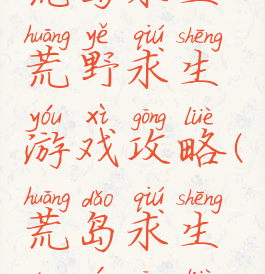 huāng yě qiú shēng
荒野求生
yóu xì gōng lüè
游戏攻略(
huāng dǎo qiú shēng
荒岛求生